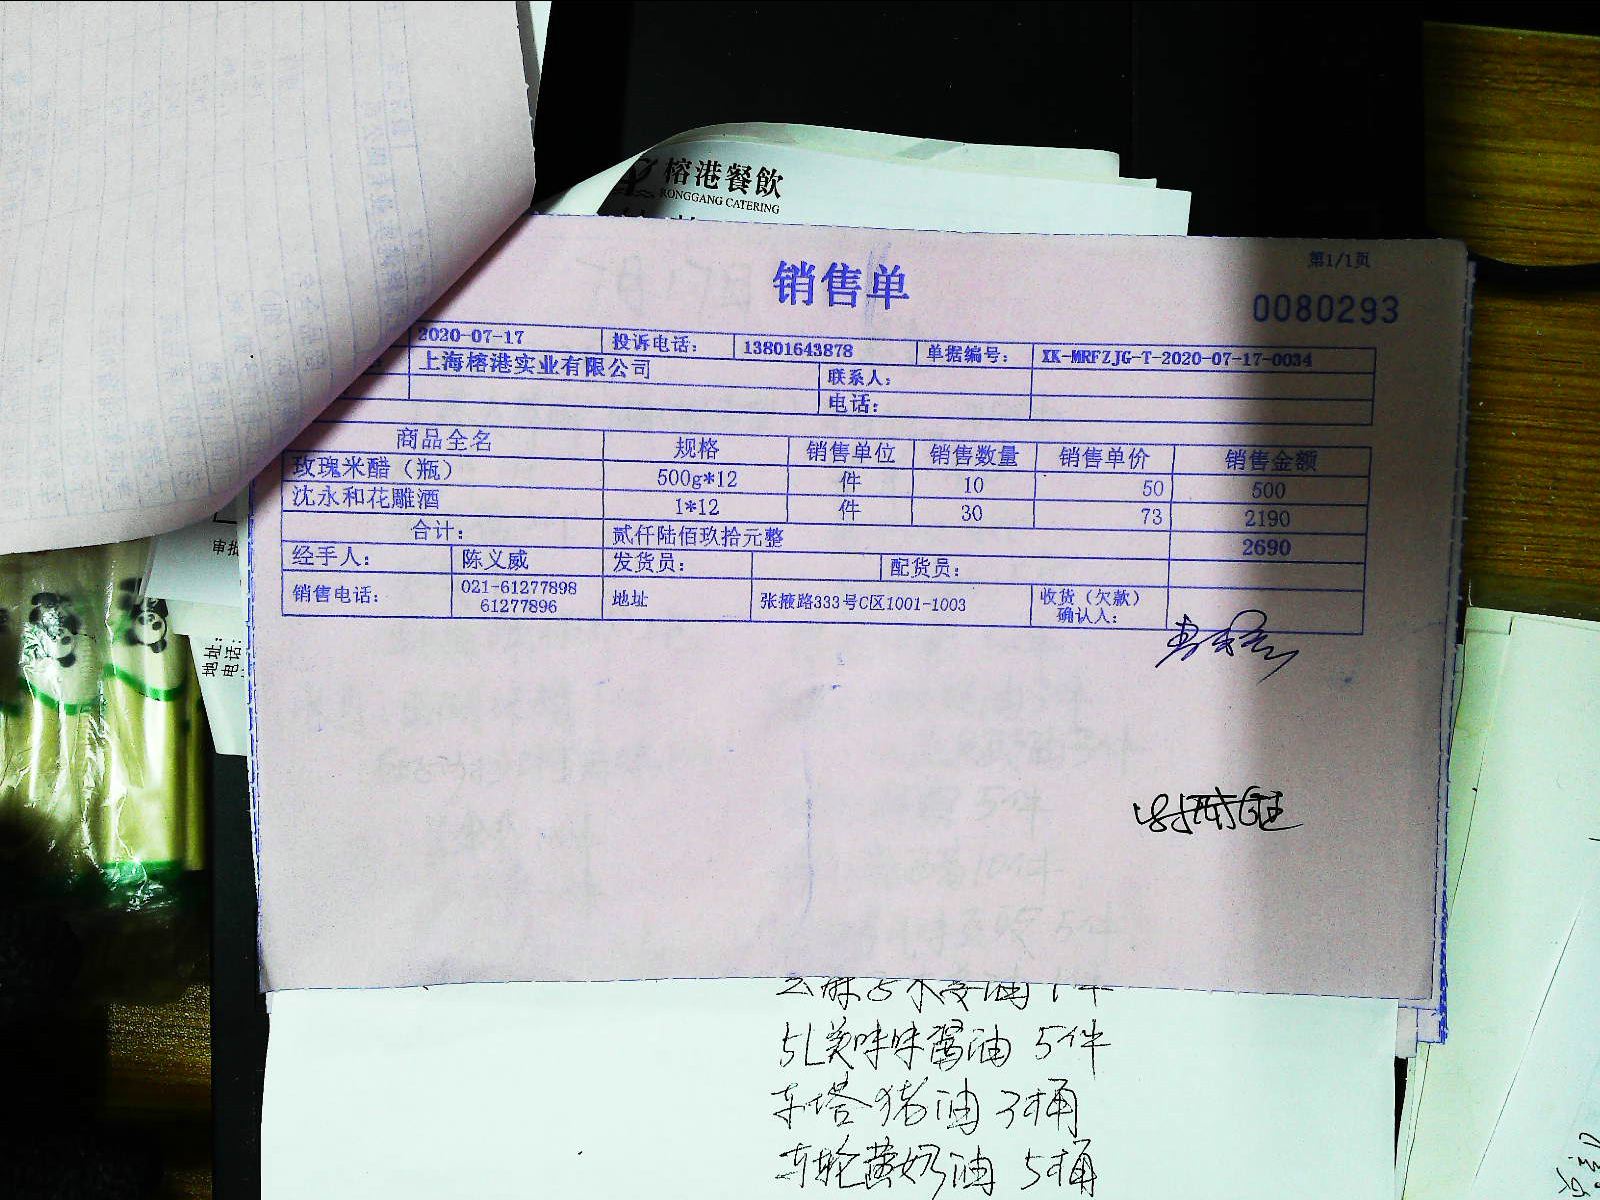 榕港餐飲
RONGGANG CATERING
销售单
第1/1页
0080293
2020-07-17 投诉电话： 13801643878 单据编号： XK-MRFZJG-T-2020-07-17-0034
上海榕港实业有限公司 联系人：
电话：
商品全名 规格 销售单位 销售数量 销售单价 销售金额
玫瑰米醋（瓶） 500g*12 件 10 50 500
沈永和花雕酒 1*12 件 30 73 2190
合计： 贰仟陆佰玖拾元整 2690
经手人： 陈义威 发货员： 配货员：
销售电话： 021-61277898 61277896 地址 张掖路333号C区1001-1003 收货（欠款）确认人：
审批
地址：
电话：
5L美味味酱油 5件
车塔猪油 3桶
车轮黄奶油 5桶